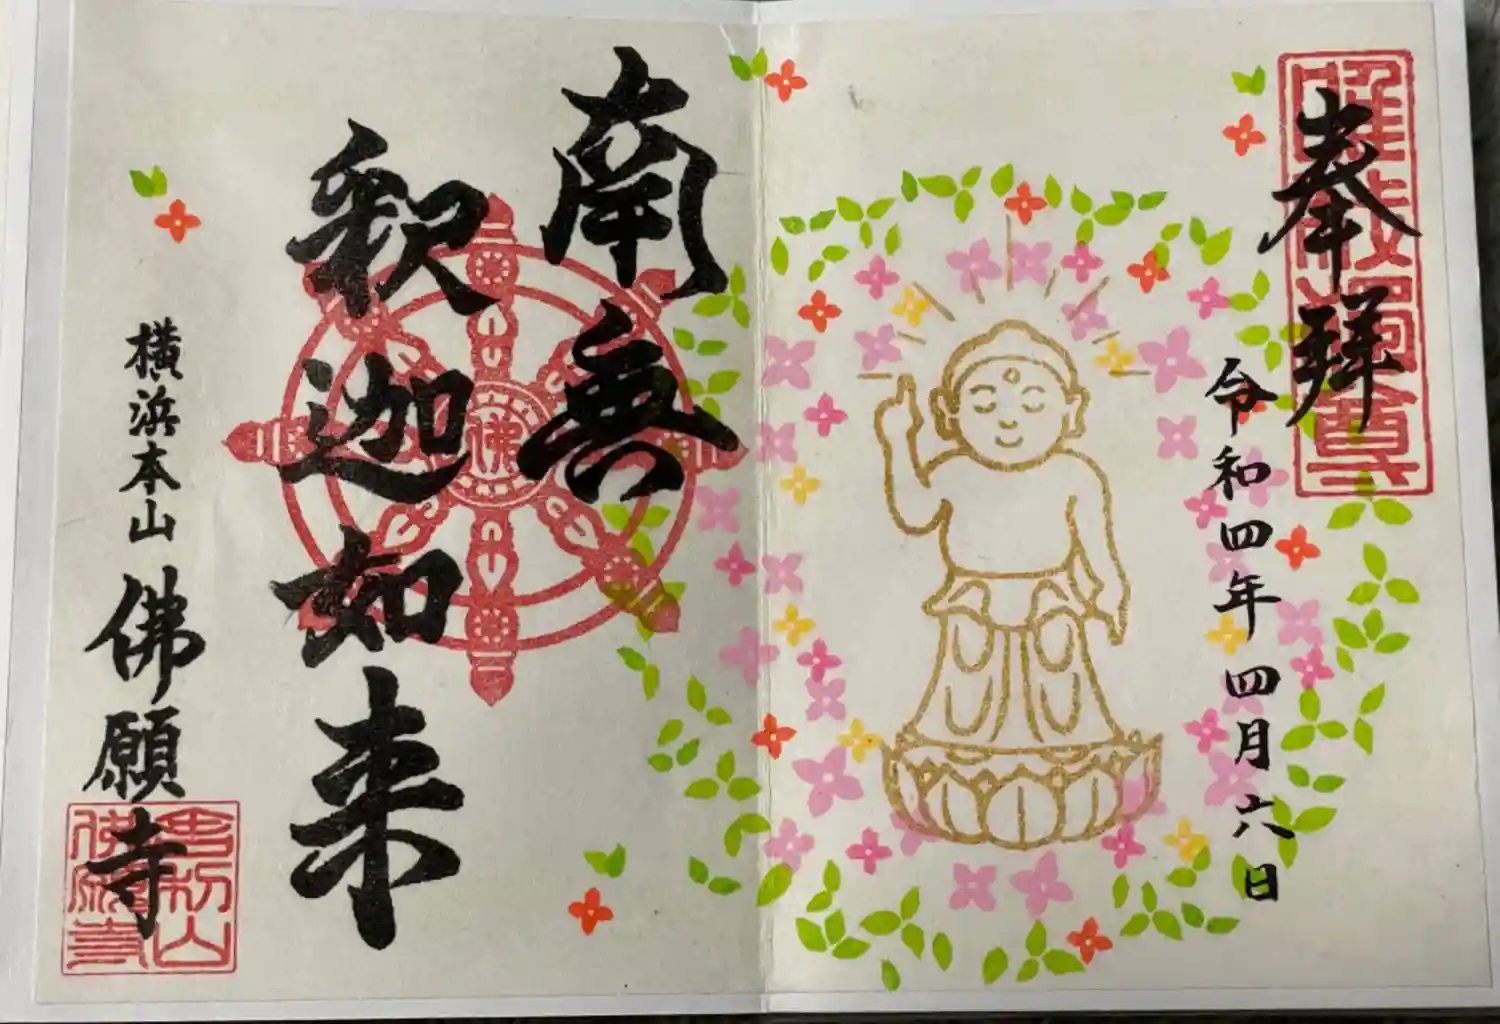 奉拝
令和四年四月六日
南無
釈迦如来
佛
横浜本山 佛願寺